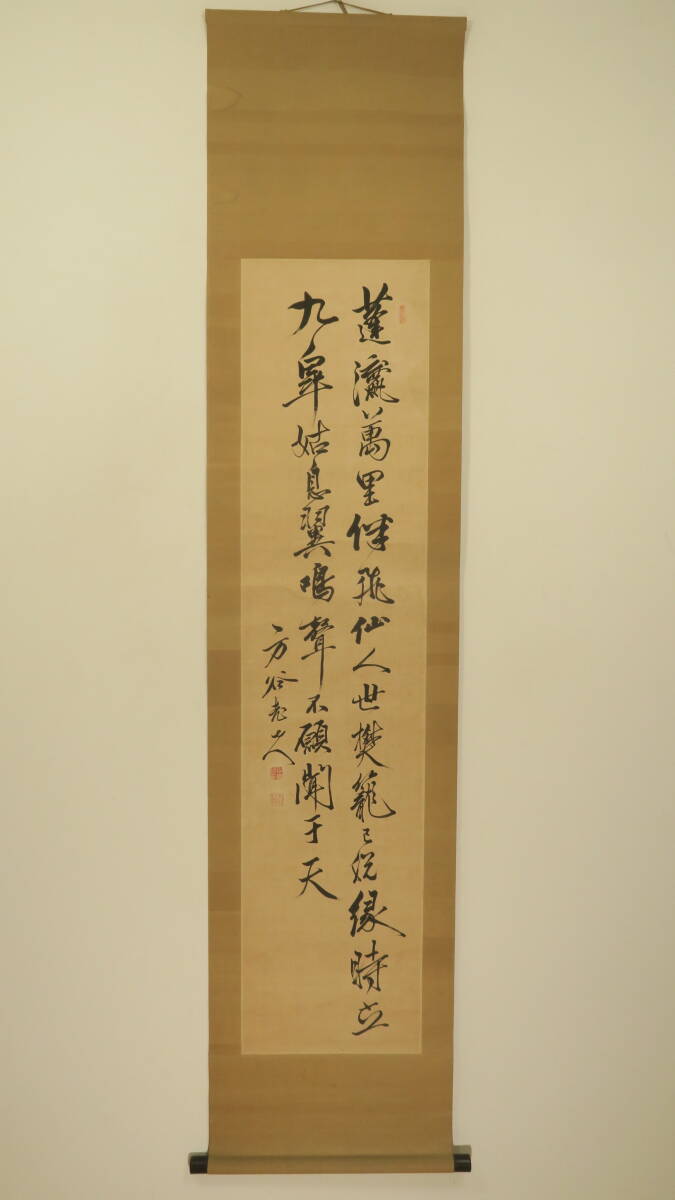 蓬瀛萬里伴飛仙人世樊籠已脱縁時立
九皐姑息翼鳴聲不願聞于天
方谷老人